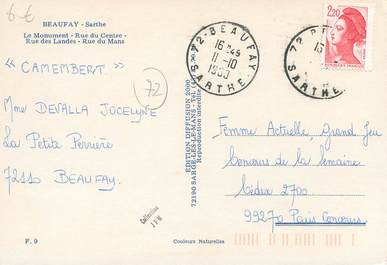 6€
BEAUFAY - Sarthe
Le Monument - Rue du Centre -
Rue des Landes - Rue du Mans
" CAMEMBERT "
72
Mme DEVALLA JOCELYNE
La Petite Perrière
72110 BEAUFAY.
F. 9
EDITION DIFFUSION 2000
72190 SARGE-LES-LE MANS - Tél. (43)
Reproduction interdite
Collection
Couleurs Naturelles
72-BEAUFAY
16 H45
11-10
SARTHE
72-BEAUFAY
16
SARTHE
2,20
Femme Actuelle, Grand Jeu
Concours de la semaine
Cedex 2700
99270 Paris Concours